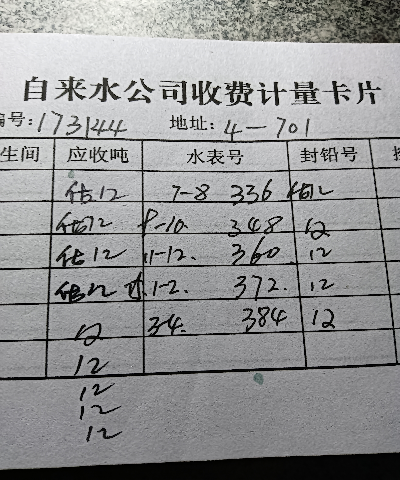 自来水公司收费计量卡片
编号:173144 地址:4-701
生间 应收吨 水表号 封铅号
估12 7-8 336 估12
估12 9-10. 348 12
估12 11-12. 360. 12
估12 1-2. 372. 12
12 3-4. 384 12
12
12
12
12